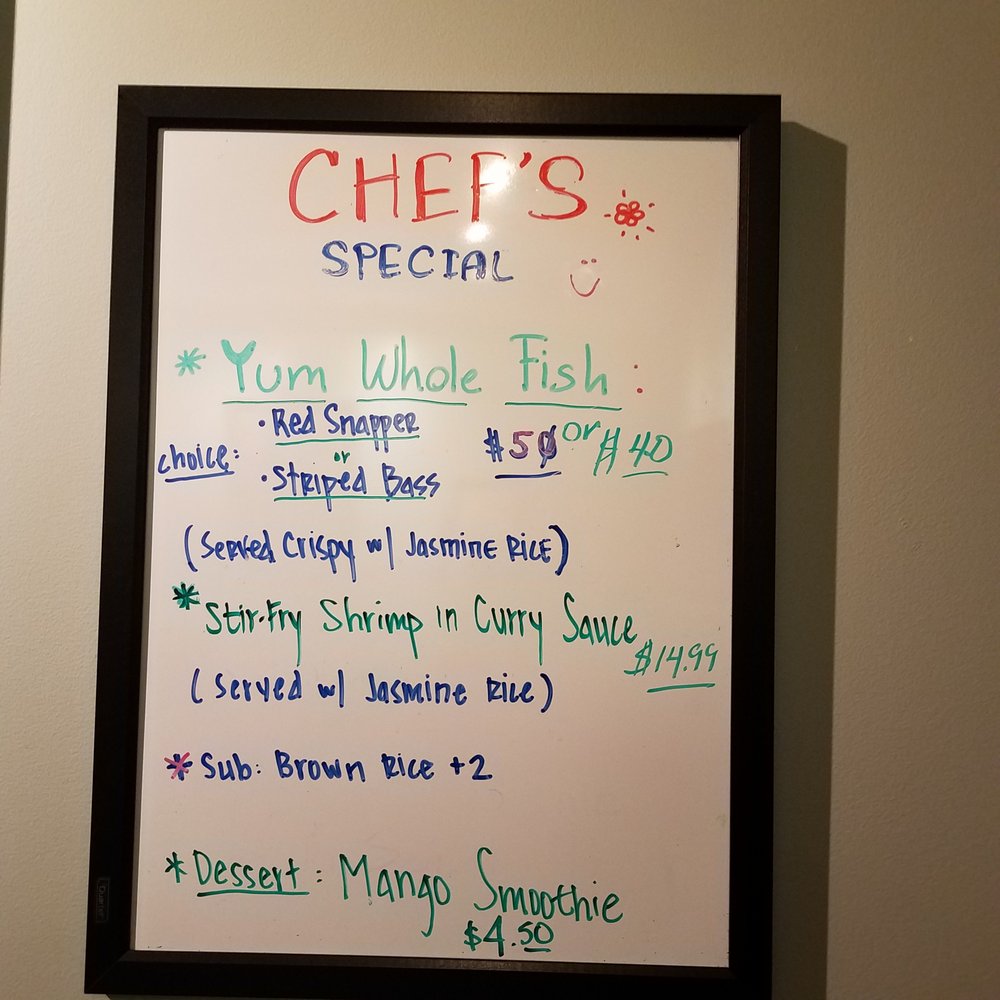 CHEF'S
SPECIAL
* Yum Whole Fish:
choice:
• Red Snapper
or
• Striped Bass
$50 or $40
(Served Crispy w/ Jasmine Rice)
* Stir-Fry Shrimp in Curry Sauce
$14.99
(Served w/ Jasmine Rice)
* Sub: Brown Rice +2
* Dessert: Mango Smoothie
$4.50
Quartet